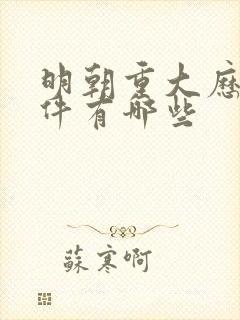 明朝重大历
件有哪些
蘇寒啊